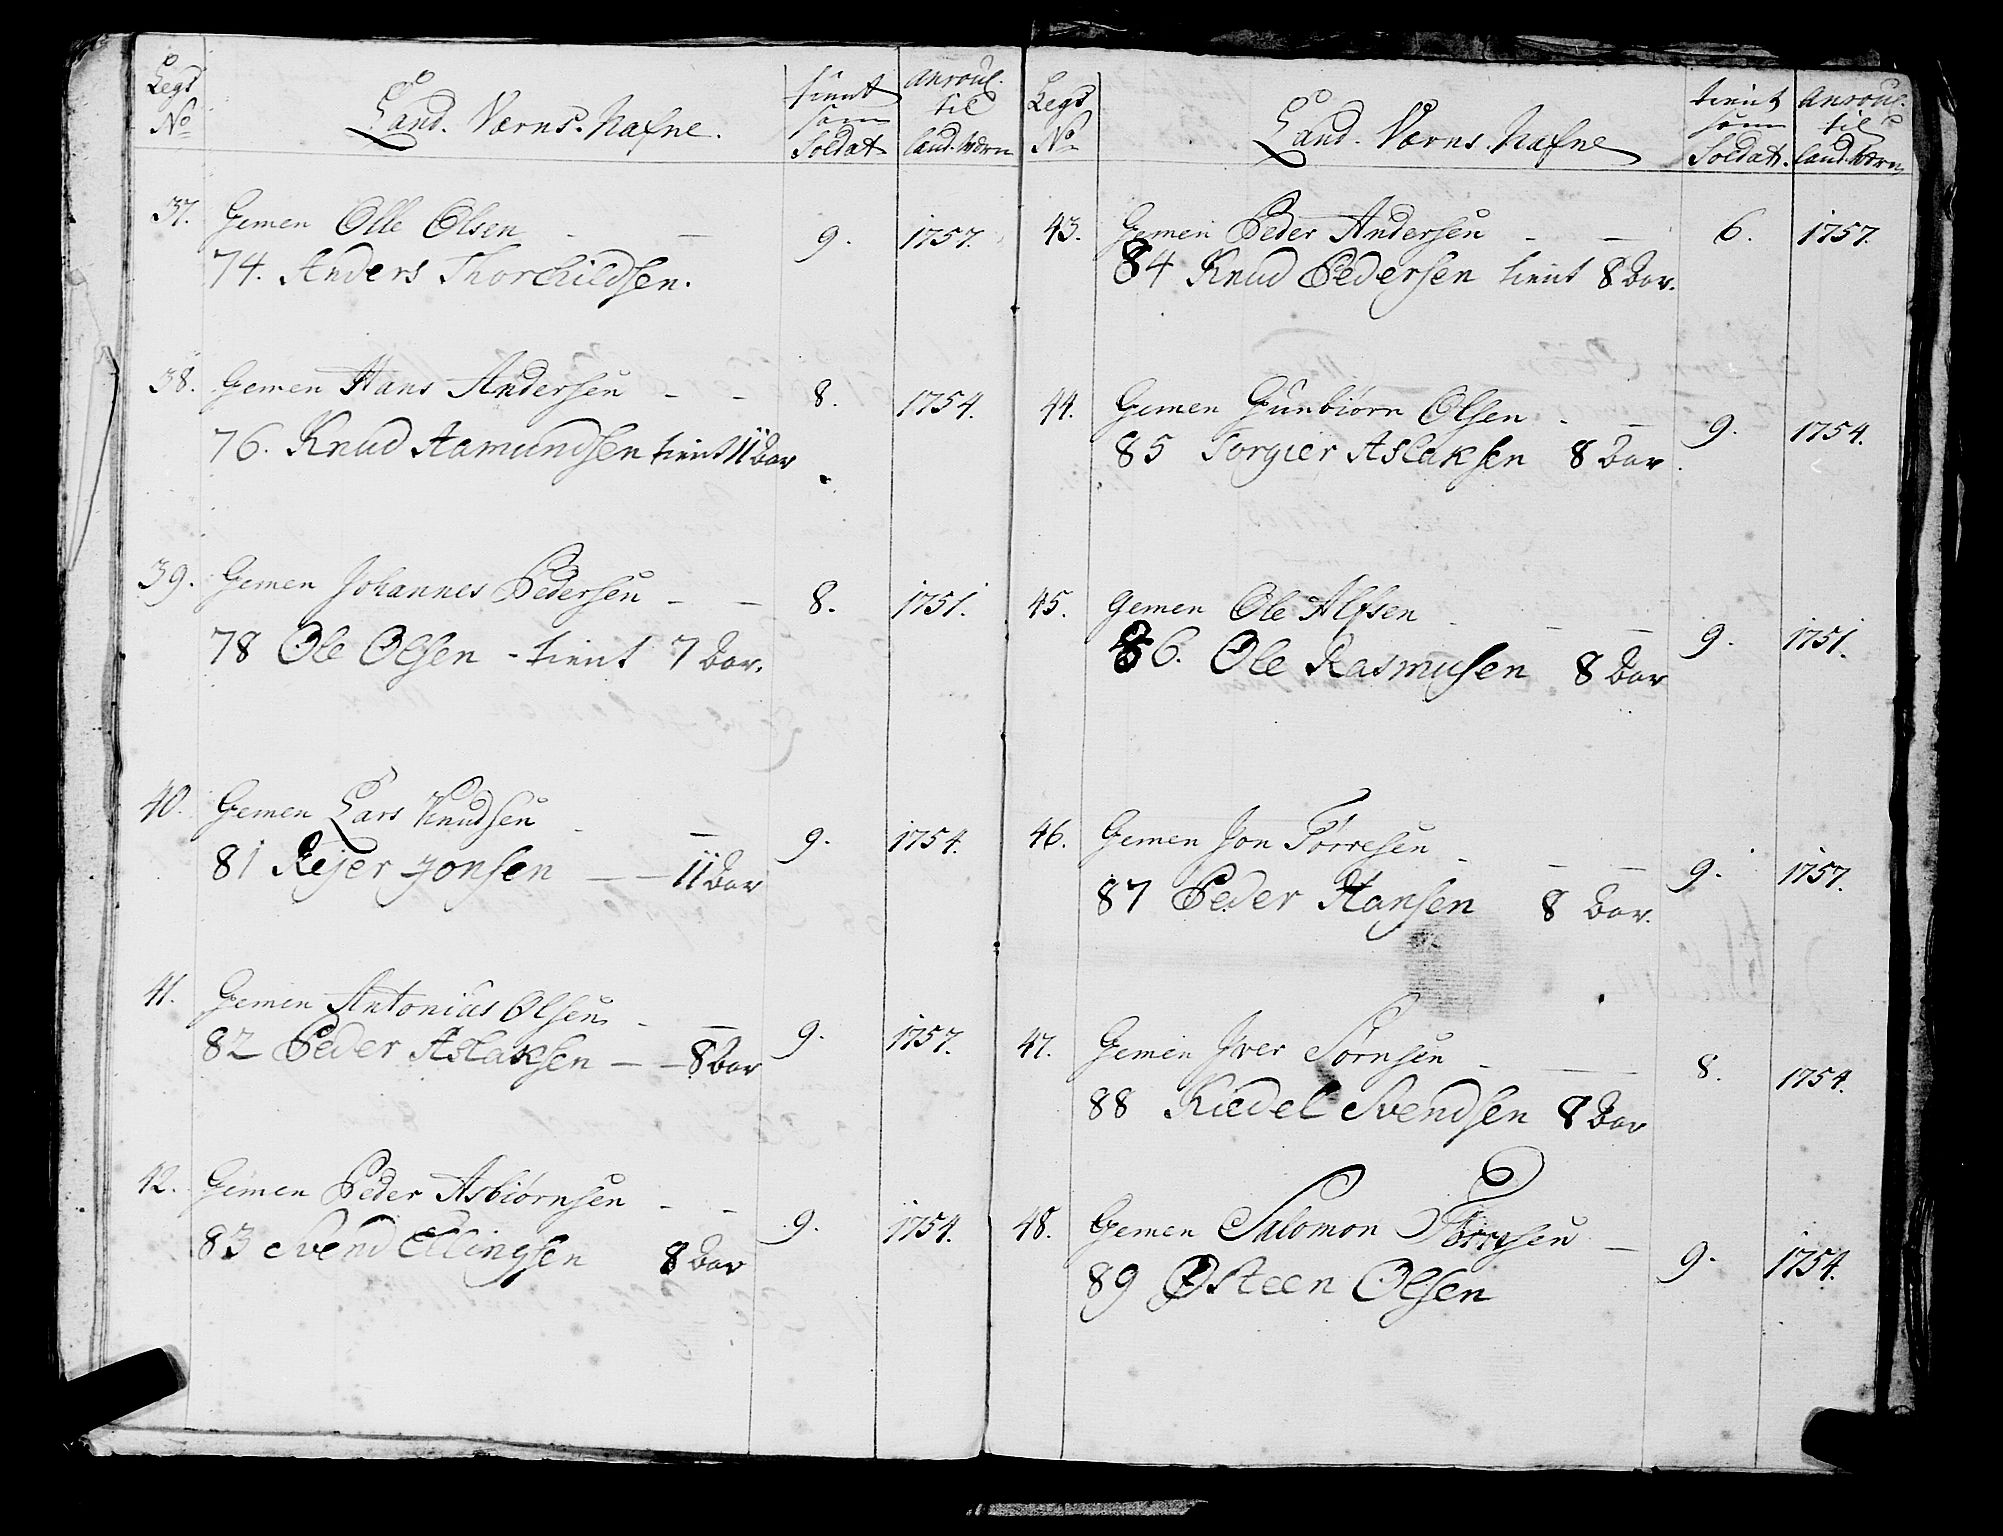 Legs No Land. Værns. Nafne. tient som Soldat anroul. til land. Wærn
37. Gemen Olle Olsen - — 9. 1757.
74. Anders Thorchildsen.
38. Gemen Hans Andersen - - 8. 1754.
76. Knud Aamundsen tient 11 Aar
39. Gemen Johannes Pedersen - — 8. 1751.
78 Ole Olsen - tient 7 Aar.
40. Gemen Lars Knudsen - — 9. 1754.
81 Rejer Jonsen — — 11 Aar
41. Gemen Antonius Olsen - — 9. 1757.
82 Peder Aslaksen — — 8 Aar
42. Gemen Peder Asbiørnsen - - 9. 1754.
83 Svend Ellingsen 8 Aar
Legs No Land. Værns. Nafne tient som Soldat. anroul. til land. Værn
43. Gemen Peder Andersen - — 6. 1757.
84 Knud Pedersen tient 8 Aar.
44. Gemen Gunbiørn Olsen - — 9. 1754.
85 Torgier Aslaksen 8 Aar.
45. Gemen Ole Alfsen - — — 9. 1751.
86. Ole Rasmusen 8 Aar
46. Gemen Jon Tørresen - — — 9. 1757.
87 Peder Hansen 8 Aar.
47. Gemen Iver Sørnsen - — — 8. 1754.
88 Kiedel Svendsen 8 Aar
48. Gemen Salomon Tørresen — 9. 1754.
89 Østeen Olsen